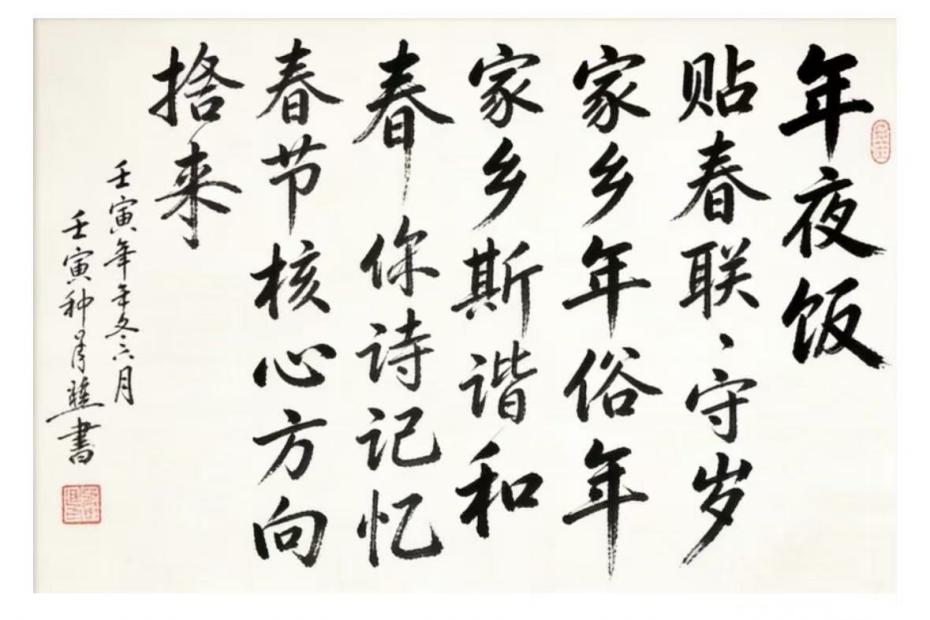 年夜饭
贴春联、守岁
家乡年俗年
家乡斯谐和
春你诗记忆
春节核心方向
捨来
壬寅年年冬六月
壬寅种月書